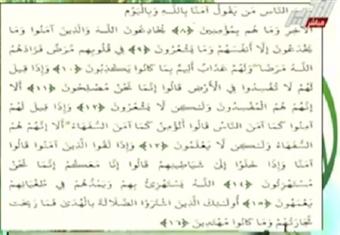 مباشر
النَّاسِ مَن يَقُولُ آمَنَّا بِاللَّهِ وَبِالْيَوْمِ
الْآخِرِ وَمَا هُم بِمُؤْمِنِينَ ﴿٨﴾ يُخَادِعُونَ اللَّهَ وَالَّذِينَ آمَنُوا وَمَا
يَخْدَعُونَ إِلَّا أَنفُسَهُمْ وَمَا يَشْعُرُونَ ﴿٩﴾ فِي قُلُوبِهِم مَّرَضٌ فَزَادَهُمُ
اللَّهُ مَرَضًا وَلَهُمْ عَذَابٌ أَلِيمٌ بِمَا كَانُوا يَكْذِبُونَ ﴿١٠﴾ وَإِذَا قِيلَ
لَهُمْ لَا تُفْسِدُوا فِي الْأَرْضِ قَالُوا إِنَّمَا نَحْنُ مُصْلِحُونَ ﴿١١﴾ أَلَا
إِنَّهُمْ هُمُ الْمُفْسِدُونَ وَلَٰكِن لَّا يَشْعُرُونَ ﴿١٢﴾ وَإِذَا قِيلَ لَهُمْ
آمِنُوا كَمَا آمَنَ النَّاسُ قَالُوا أَنُؤْمِنُ كَمَا آمَنَ السُّفَهَاءُ أَلَا إِنَّهُمْ هُمُ
السُّفَهَاءُ وَلَٰكِن لَّا يَعْلَمُونَ ﴿١٣﴾ وَإِذَا لَقُوا الَّذِينَ آمَنُوا قَالُوا
آمَنَّا وَإِذَا خَلَوْا إِلَىٰ شَيَاطِينِهِمْ قَالُوا إِنَّا مَعَكُمْ إِنَّمَا نَحْنُ
مُسْتَهْزِئُونَ ﴿١٤﴾ اللَّهُ يَسْتَهْزِئُ بِهِمْ وَيَمُدُّهُمْ فِي طُغْيَانِهِمْ
يَعْمَهُونَ ﴿١٥﴾ أُولَٰئِكَ الَّذِينَ اشْتَرَوُا الضَّلَالَةَ بِالْهُدَىٰ فَمَا رَبِحَت
تِّجَارَتُهُمْ وَمَا كَانُوا مُهْتَدِينَ ﴿١٦﴾